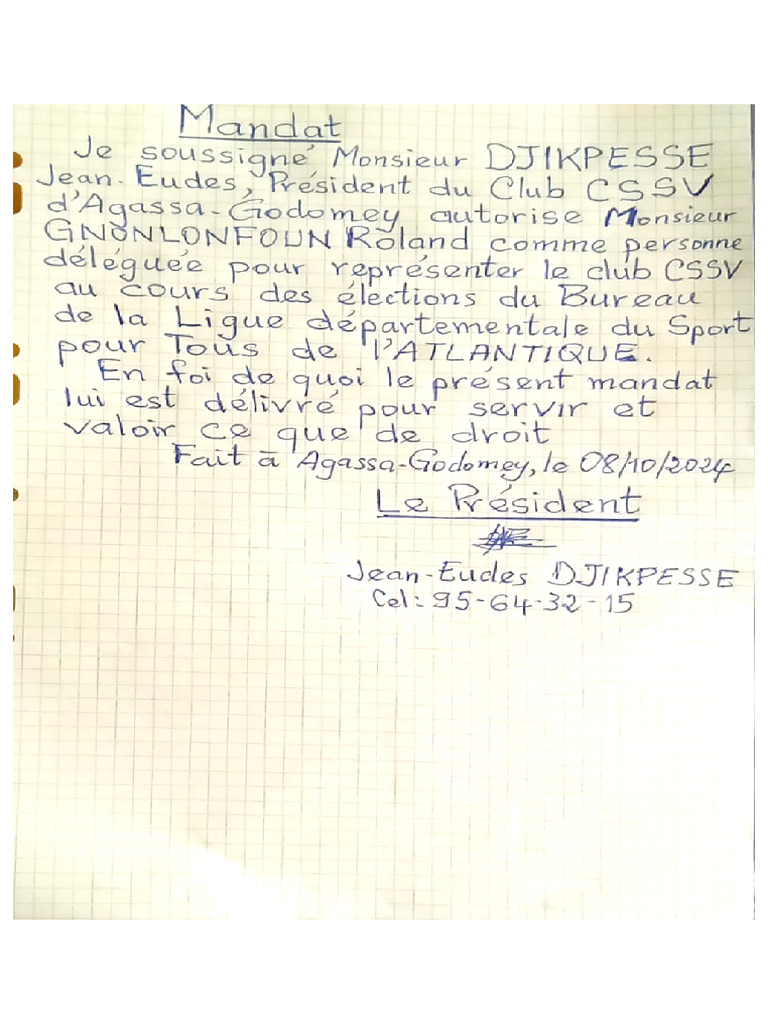 Mandat
Je soussigné Monsieur DJIKPESSE
Jean-Eudes, Président du Club CSSV
d'Agassa-Godomey autorise Monsieur
GNONLONFOUN Roland comme personne
déléguée pour représenter le club CSSV
au cours des élections du Bureau
de la Ligue départementale du Sport
pour Tous de l'ATLANTIQUE.
En foi de quoi le présent mandat
lui est délivré pour servir et
valoir ce que de droit
Fait à Agassa-Godomey, le 08/10/2024
Le Président
Jean-Eudes DJIKPESSE
Cel: 95-64-32-15